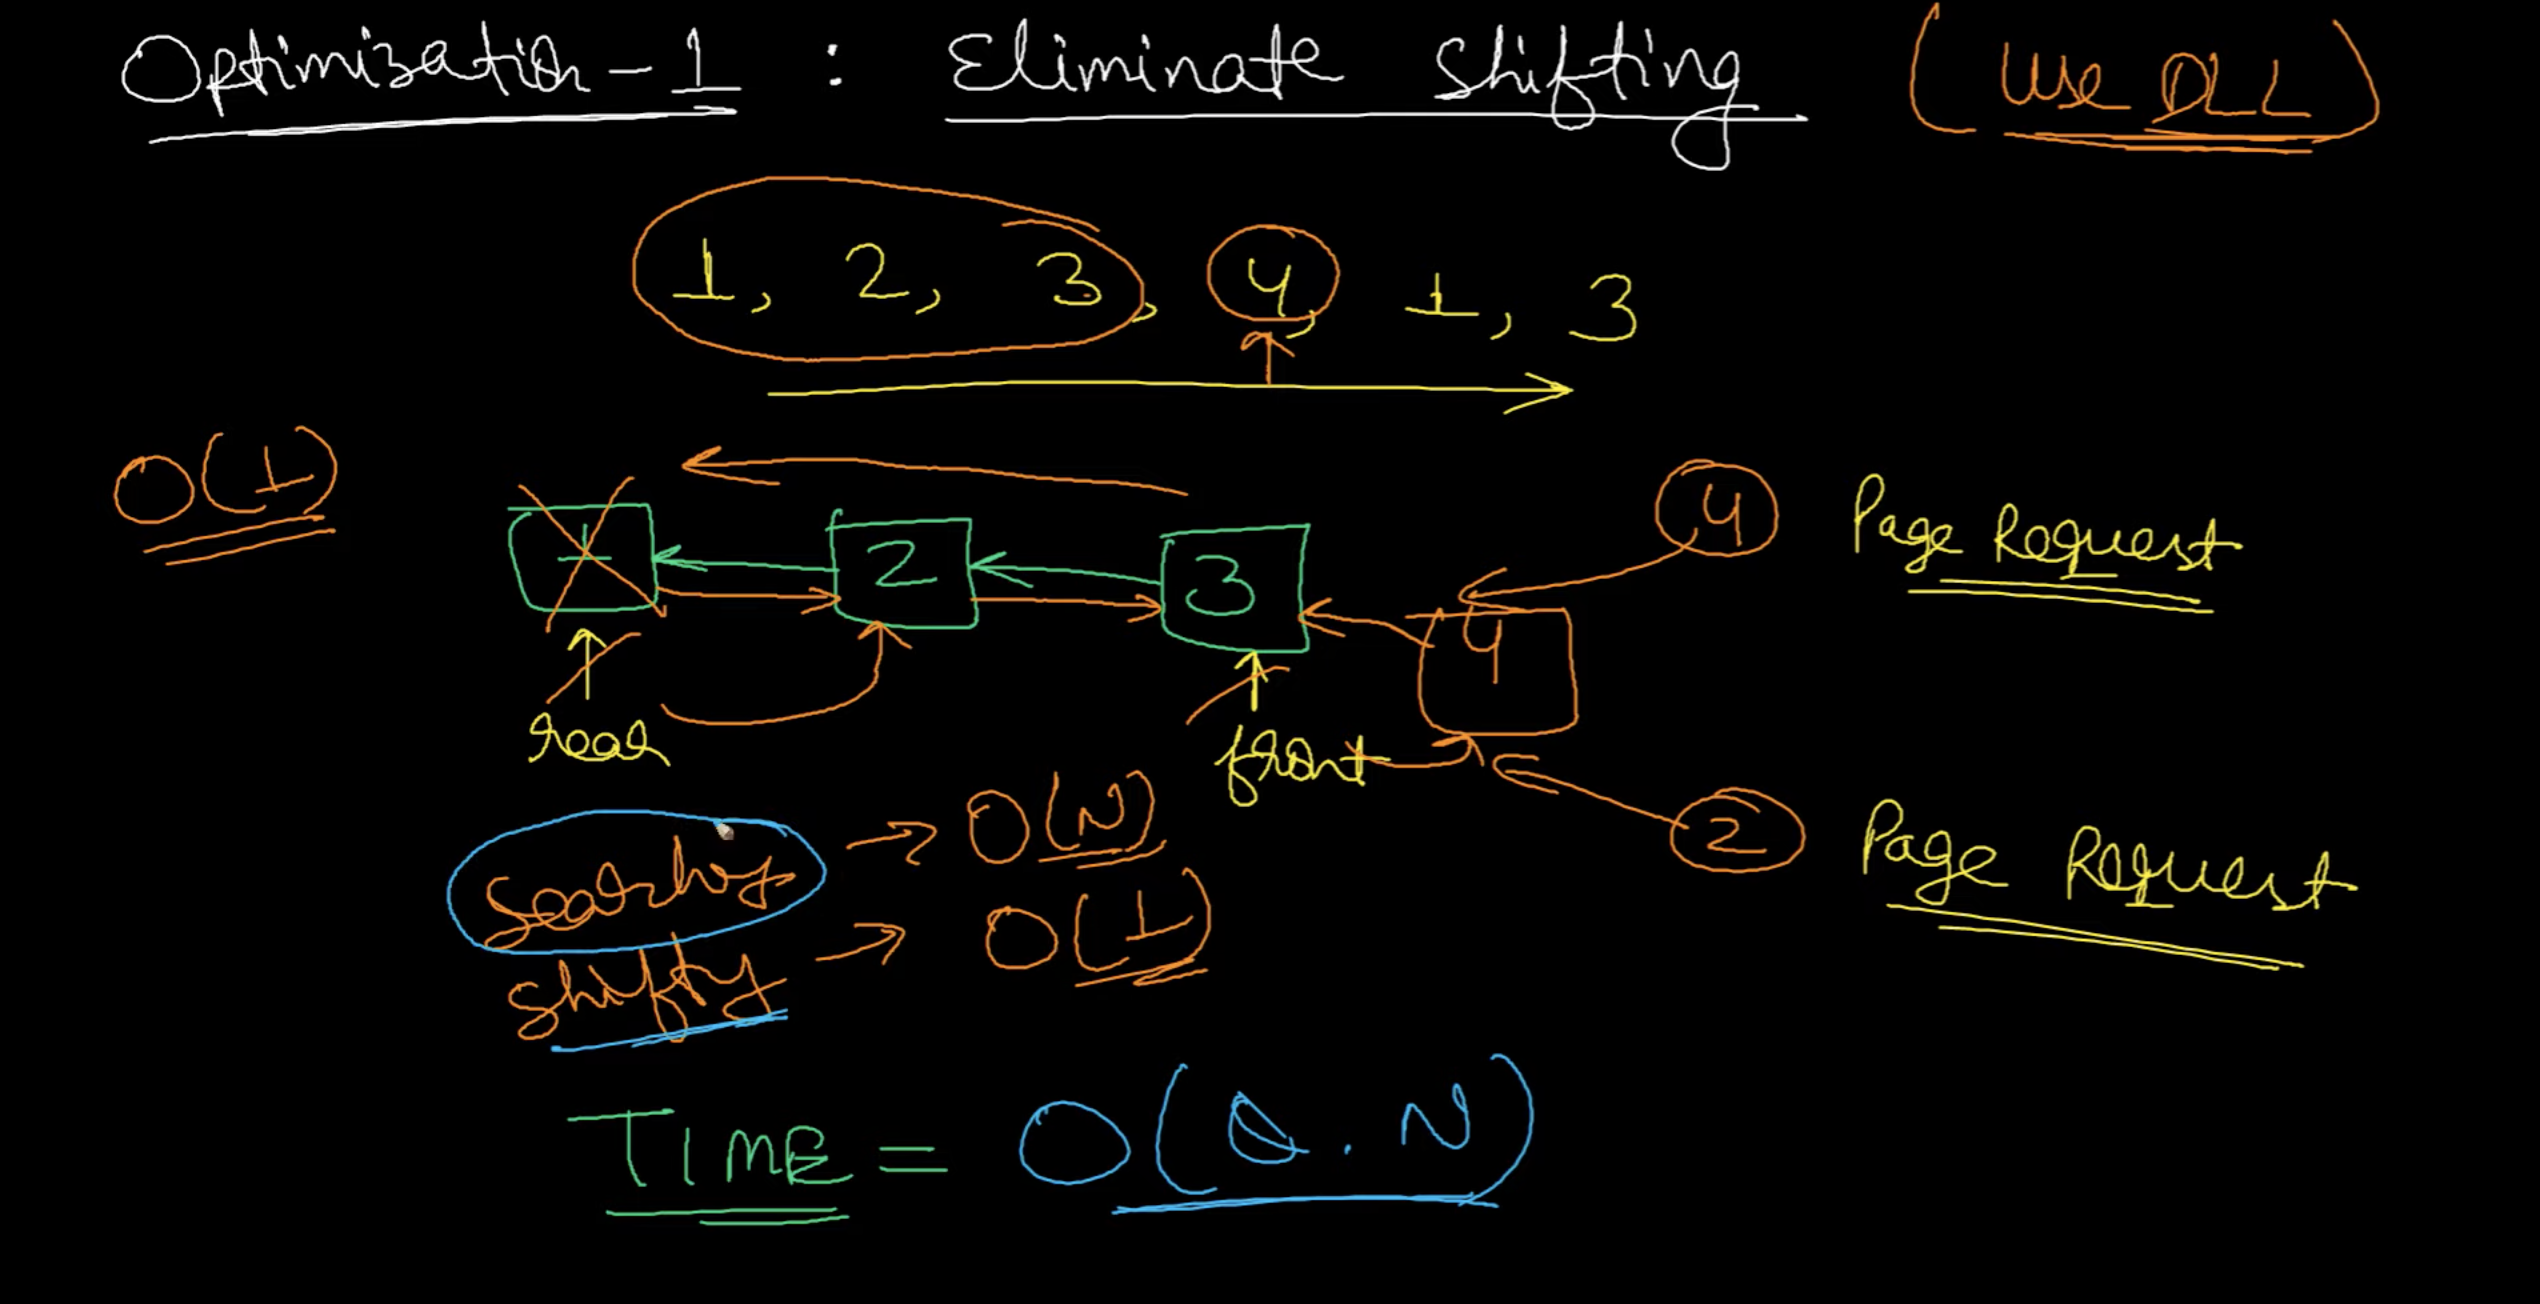 Optimization-1 : Eliminate Shifting (Use DLL)
1, 2, 3, 4, 1, 3
O(1)
1 2 3 4
4 Page Request
rear front
2 Page Request
Searching → O(N)
Shifting → O(1)
TIME = O(Q.N)